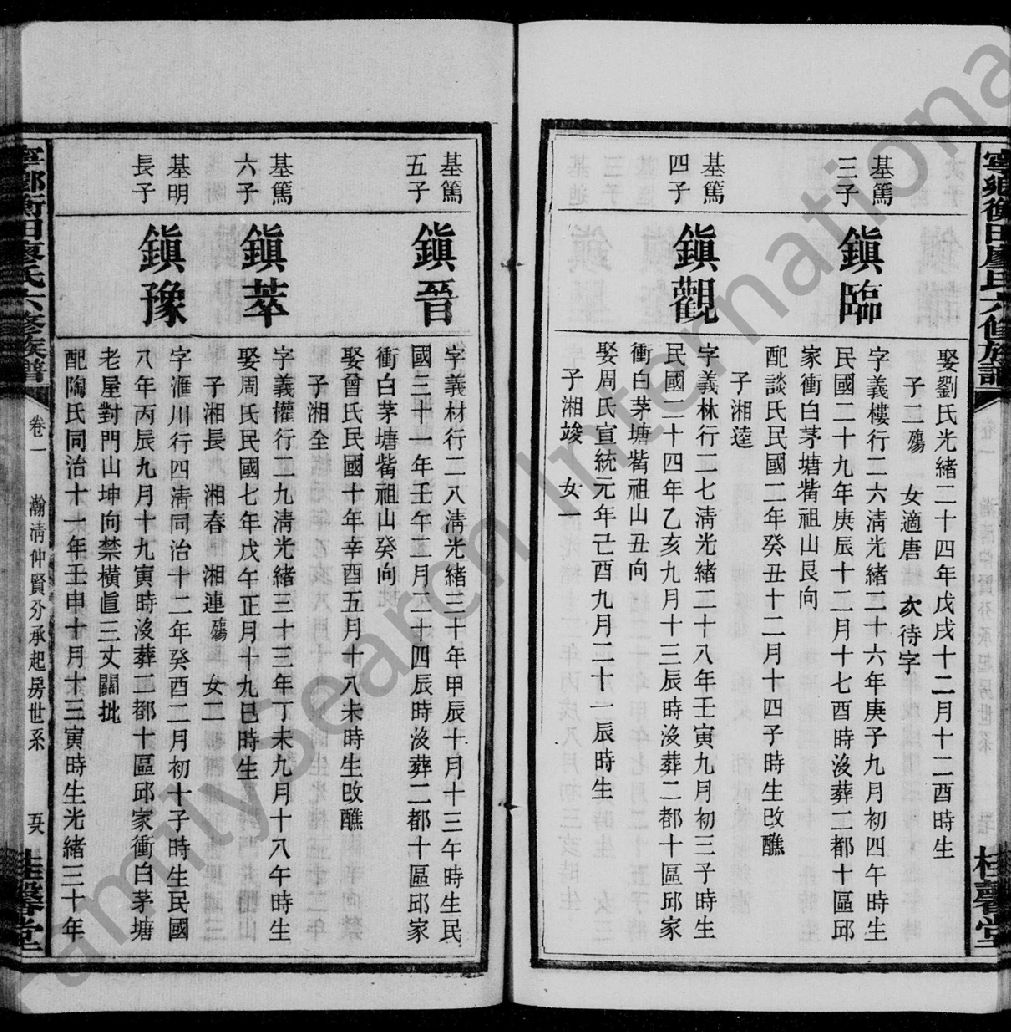 寧鄉衡田廖氏六修族譜
桂馨堂
娶劉氏光緒二十四年戊戌十二月十二酉時生
子二殤 女適唐 次待字
基篤三子
鎮臨
字義樓行二六清光緒二十六年庚子九月初四午時生
民國二十九年庚辰十二月十七酉時沒葬二都十區邱
家衝白茅塘觜祖山艮向
配談氏民國二年癸丑十二月十四子時生改醮
子湘逵
基篤四子
鎮觀
字義林行二七清光緒二十八年壬寅九月初三子時生
民國二十四年乙亥九月十三辰時沒葬二都十區邱家
衝白茅塘觜祖山丑向
娶周氏宣統元年己酉九月二十一辰時生
子湘竣 女一
基篤五子
鎮晉
字義材行二八清光緒三十年甲辰十月十三午時生民
國三十一年壬午二月二十四辰時沒葬二都十區邱家
衝白茅塘觜祖山癸向
娶曾氏民國十年辛酉五月十八未時生改醮
子湘全
基篤六子
鎮萃
字義權行二九清光緒三十三年丁未九月十八午時生
娶周氏民國七年戊午正月十九巳時生
子湘長 湘春 湘連殤 女二
基明長子
鎮豫
字滙川行四清同治十二年癸酉二月初十子時生民國
八年丙辰九月十九寅時沒葬二都十區邱家衝白茅塘
老屋對門山坤向禁橫直三丈闊批
配陶氏同治十一年壬申十月十三寅時生光緒三十年
寧鄉衡田廖氏六修族譜
卷一
瀚清仲賢分承起房世系
桂馨堂
FamilySearch International